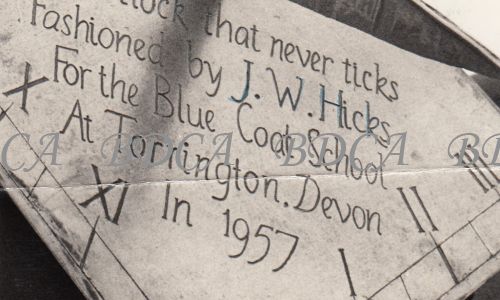 clock that never ticks
Fashioned by J. W. Hicks
For the Blue Coat School
At Torrington. Devon
In 1957
X
XI
I
II
III
BDCA BDCA BDCA